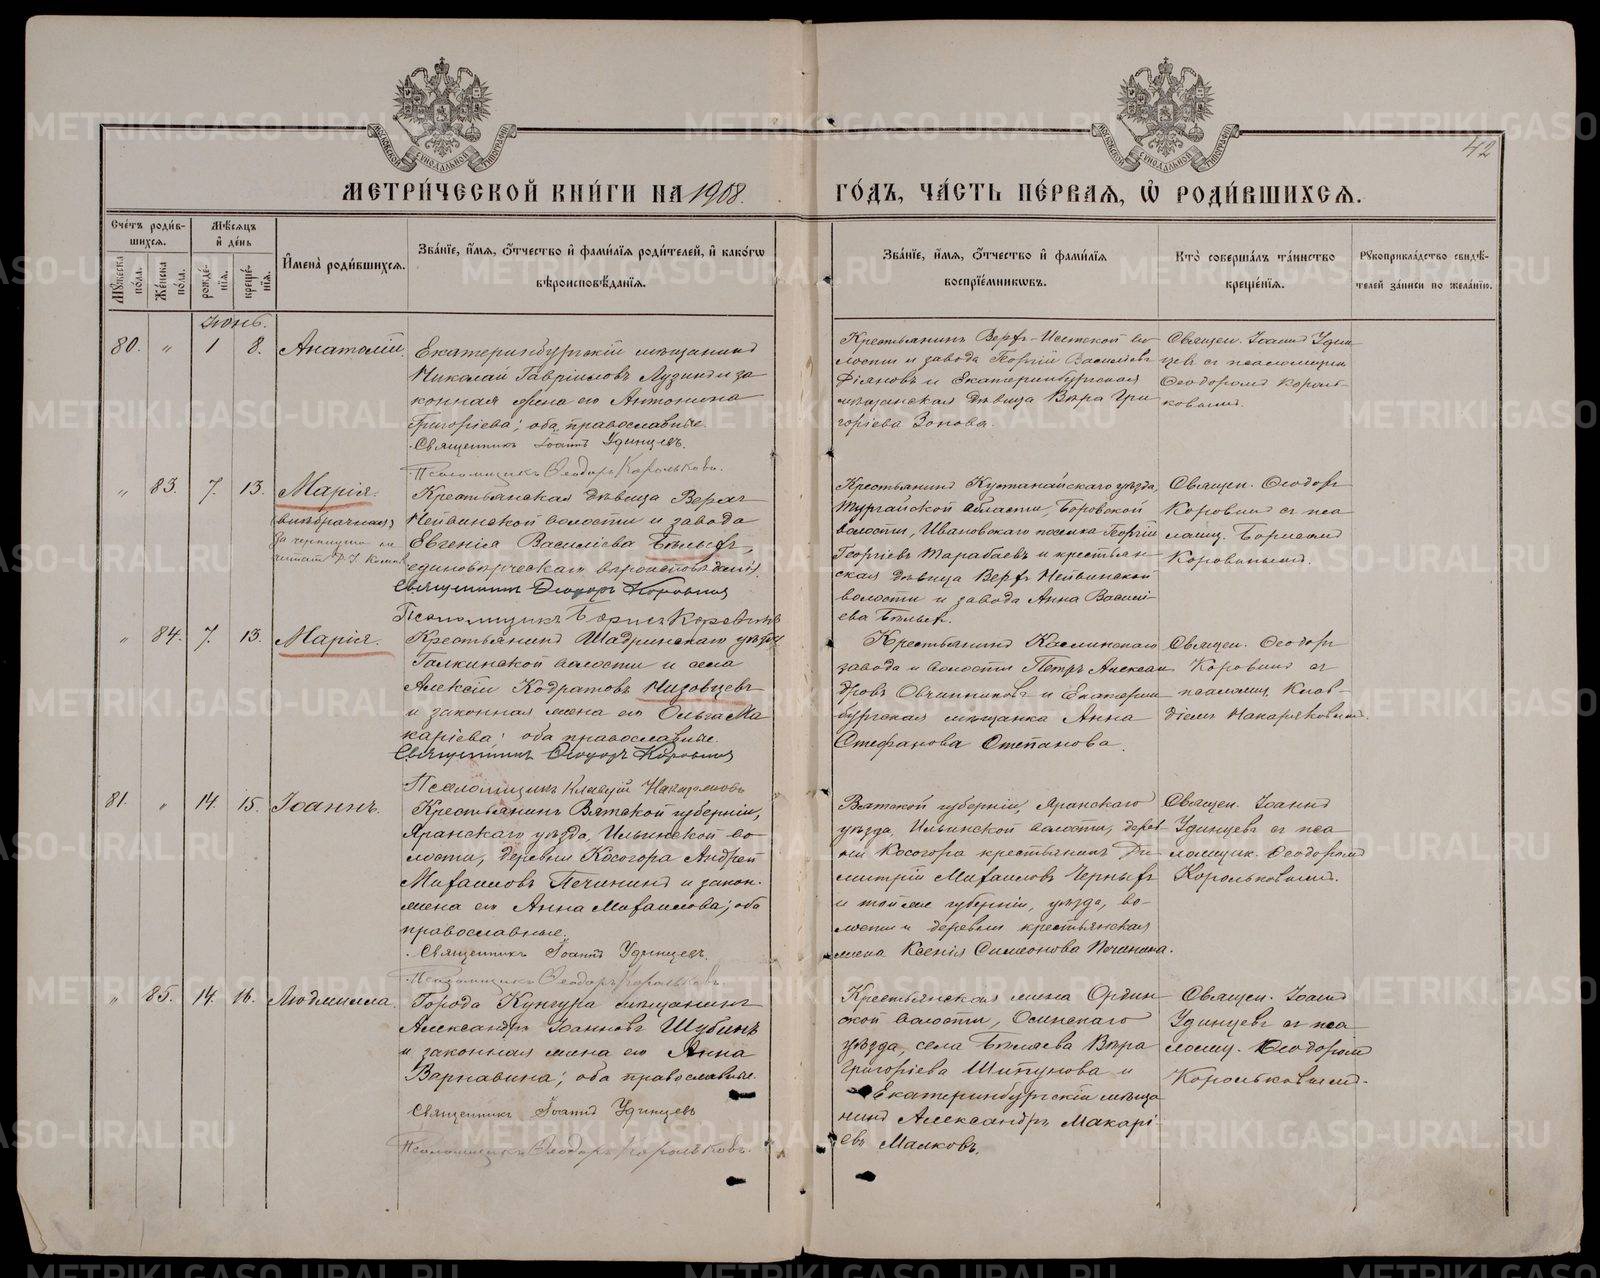 МЕТРИ́ЧЕСКОЙ КНИ́ГИ НА 1908.
ГО́ДЪ, ЧА́СТЬ ПЕ́РВАЯ, Ѡ҆ РОДИ́ВШИХСЯ.
42
Сче́тъ роди́вшихся.
Му́жеска по́ла.
Же́нска по́ла.
Мѣ́сяцъ и҆ де́нь
рожде́нїя.
креще́нїя.
И҆мена̀ роди́вшихся.
Зва́нїе, и҆́мя, ѻ҆́тчество и҆ фами́лїя роди́телей, и҆ како́гѡ
вѣроисповѣ́данїя.
Зва́нїе, и҆́мя, ѻ҆́тчество и҆ фами́лїя
воспрїе́мникѡвъ.
Кто̀ соверша́лъ та́инство
креще́нїя.
Рꙋкоприкла́дство свидѣ́-
телей за́писи по жела́нїю.
Іюнь.
80. " 1 8. Анатолій.
Екатеринбургскій мѣщанинъ
Николай Гавріиловъ Лузинъ и за
конная жена его Антонина
Григоріева; оба православные.
Священникъ Іоаннъ Удинцевъ.
Псаломщикъ Ѳеодоръ Корольковъ.
Крестьянинъ Верх-Исетской во
лости и завода Георгій Василіевъ
и Екатеринбургская
мѣщанская дѣвица Вѣра Гри
горіева Зонова.
Священ. Іоаннъ Удин
цевъ съ псаломщик
Ѳеодоромъ Король-
ковымъ.
" 83. 7. 13. Марія.
(внѣбрачная)
Крестьянская дѣвица Верхъ
Нейвинской волости и завода
Евгенія Василіева Бѣлыхъ,
единовѣрческаго вѣроисповѣданія.
Священникъ Ѳеодоръ Коровинъ
Псаломщикъ Борисъ Коровинъ
Крестьянинъ Кустанайскаго уѣзда,
Тургайской области, Боровской
волости, Ивановскаго поселка Георгій
Георгіевъ Тарабаевъ и крестьян-
ская дѣвица Верхъ Нейвинской
волости и завода Анна Василі-
ева Бѣлыхъ.
Священ. Ѳеодоръ
Коровинъ съ пса
ломщ. Борисомъ
Коровинымъ.
" 84. 7. 13. Марія.
Крестьянинъ Шадринскаго уѣзда
Галкинской волости и села
Алексій Кодратовъ Низовцевъ
и законная жена его Ольга Ма
каріева; оба православные.
Священникъ Ѳеодоръ Коровинъ
Псаломщикъ Клавдій Накаряковъ
Крестьянинъ Каслинскаго
завода и волости Петръ Алексан
дровъ Овчинниковъ и Екатерин
бургская мѣщанка Анна
Стефанова Степанова.
Священ. Ѳеодоръ
Коровинъ съ
псаломщ. Клав-
діемъ Накаряковымъ.
81. " 14. 15. Іоаннъ.
Крестьянинъ Вятской губерніи,
Яранскаго уѣзда, Ильинской во-
лости, деревни Косогора Андрей
Михаиловъ Печининъ и закон.
жена его Анна Михаилова; оба
православные.
Священникъ Іоаннъ Удинцевъ.
Псаломщикъ Ѳеодоръ Корольковъ.
Вятской губерніи, Яранскаго
уѣзда, Ильинской волости, дерев
ни Косогора крестьянинъ Ди
митрій Михаиловъ Черныхъ
и той же губерніи, уѣзда, во-
лости и деревни крестьянская
жена Ксенія Симеонова Печинина.
Священ. Іоаннъ
Удинцевъ съ пса
ломщик. Ѳеодоромъ
Корольковымъ.
" 85. 14. 16. Людмилла.
Города Кунгура мѣщанинъ
Александръ Іоанновъ Шубинъ
и законная жена его Анна
Варнавина; оба православные.
Священникъ Іоаннъ Удинцевъ
Псаломщикъ Ѳеодоръ Корольковъ.
Крестьянская жена Ордин
ской волости, Осинскаго
уѣзда, села Бѣляева Вѣра
Григоріева Шипунова и
Екатеринбургскій мѣща
нинъ Александръ Макарі-
евъ Малковъ.
Священ. Іоаннъ
Удинцевъ съ пса
ломщ. Ѳеодоромъ
Корольковымъ.
METRIKI.GASO-URAL.RU